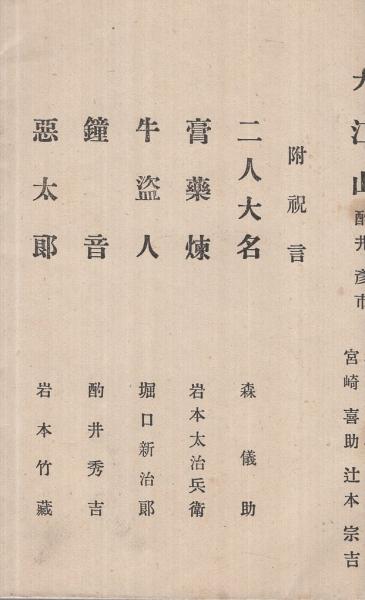 大江山 酌井彦市
宮崎喜助 辻本宗吉
附祝言
二人大名 森儀助
膏藥煉 岩本太治兵衛
牛盜人 堀口新治郞
鐘音 酌井秀吉
惡太郞 岩本竹藏